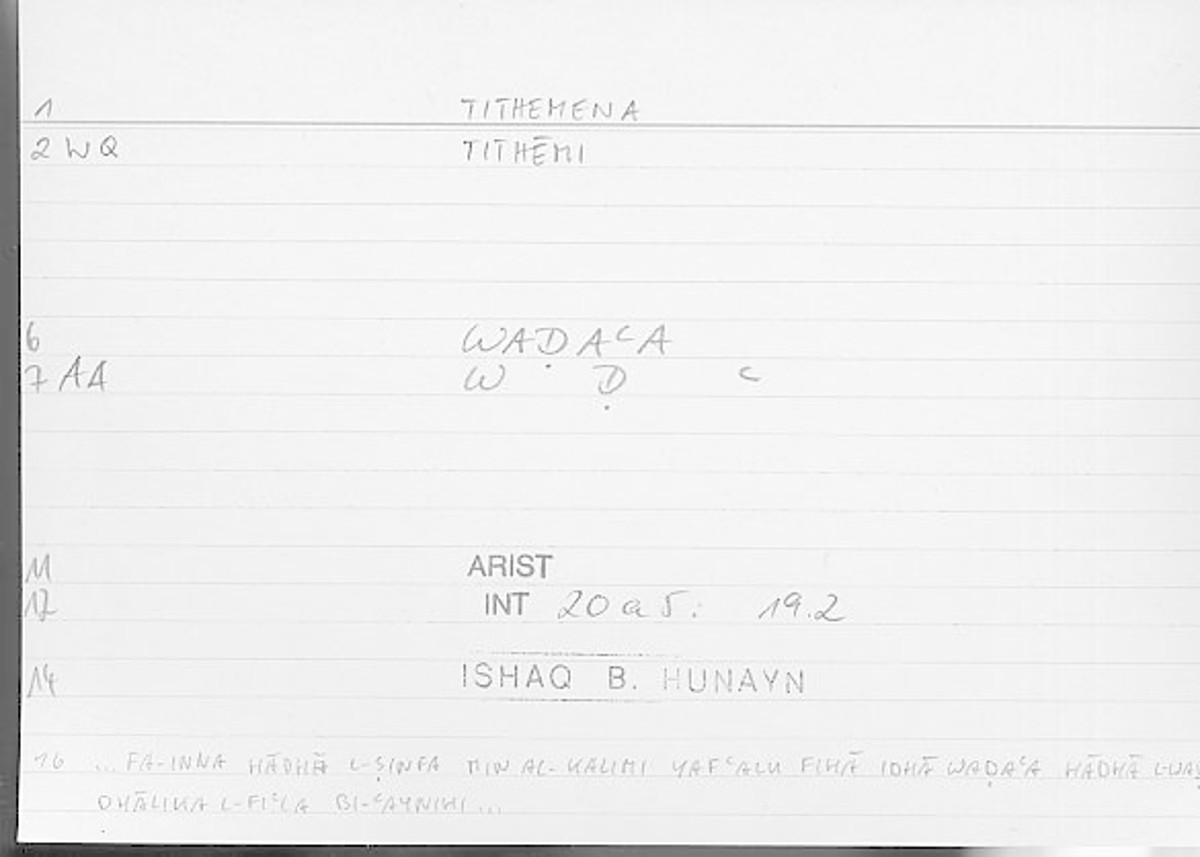 1 TITHEMENA
2 WQ TITHĒMI
6 WAḌAʿA
7 AA W Ḍ ʿ
11 ARIST
12 INT 20 a 5: 19.2
14 ISHAQ B. HUNAYN
16 ... FA-INNA HĀDHĀ L-ṢINFA MIN AL-KALIMI YAFʿALU FIHĀ IDHĀ WAḌAʿA HĀDHĀ
DHĀLIKA L-FIʿLA BI-ʿAYNIHI ...